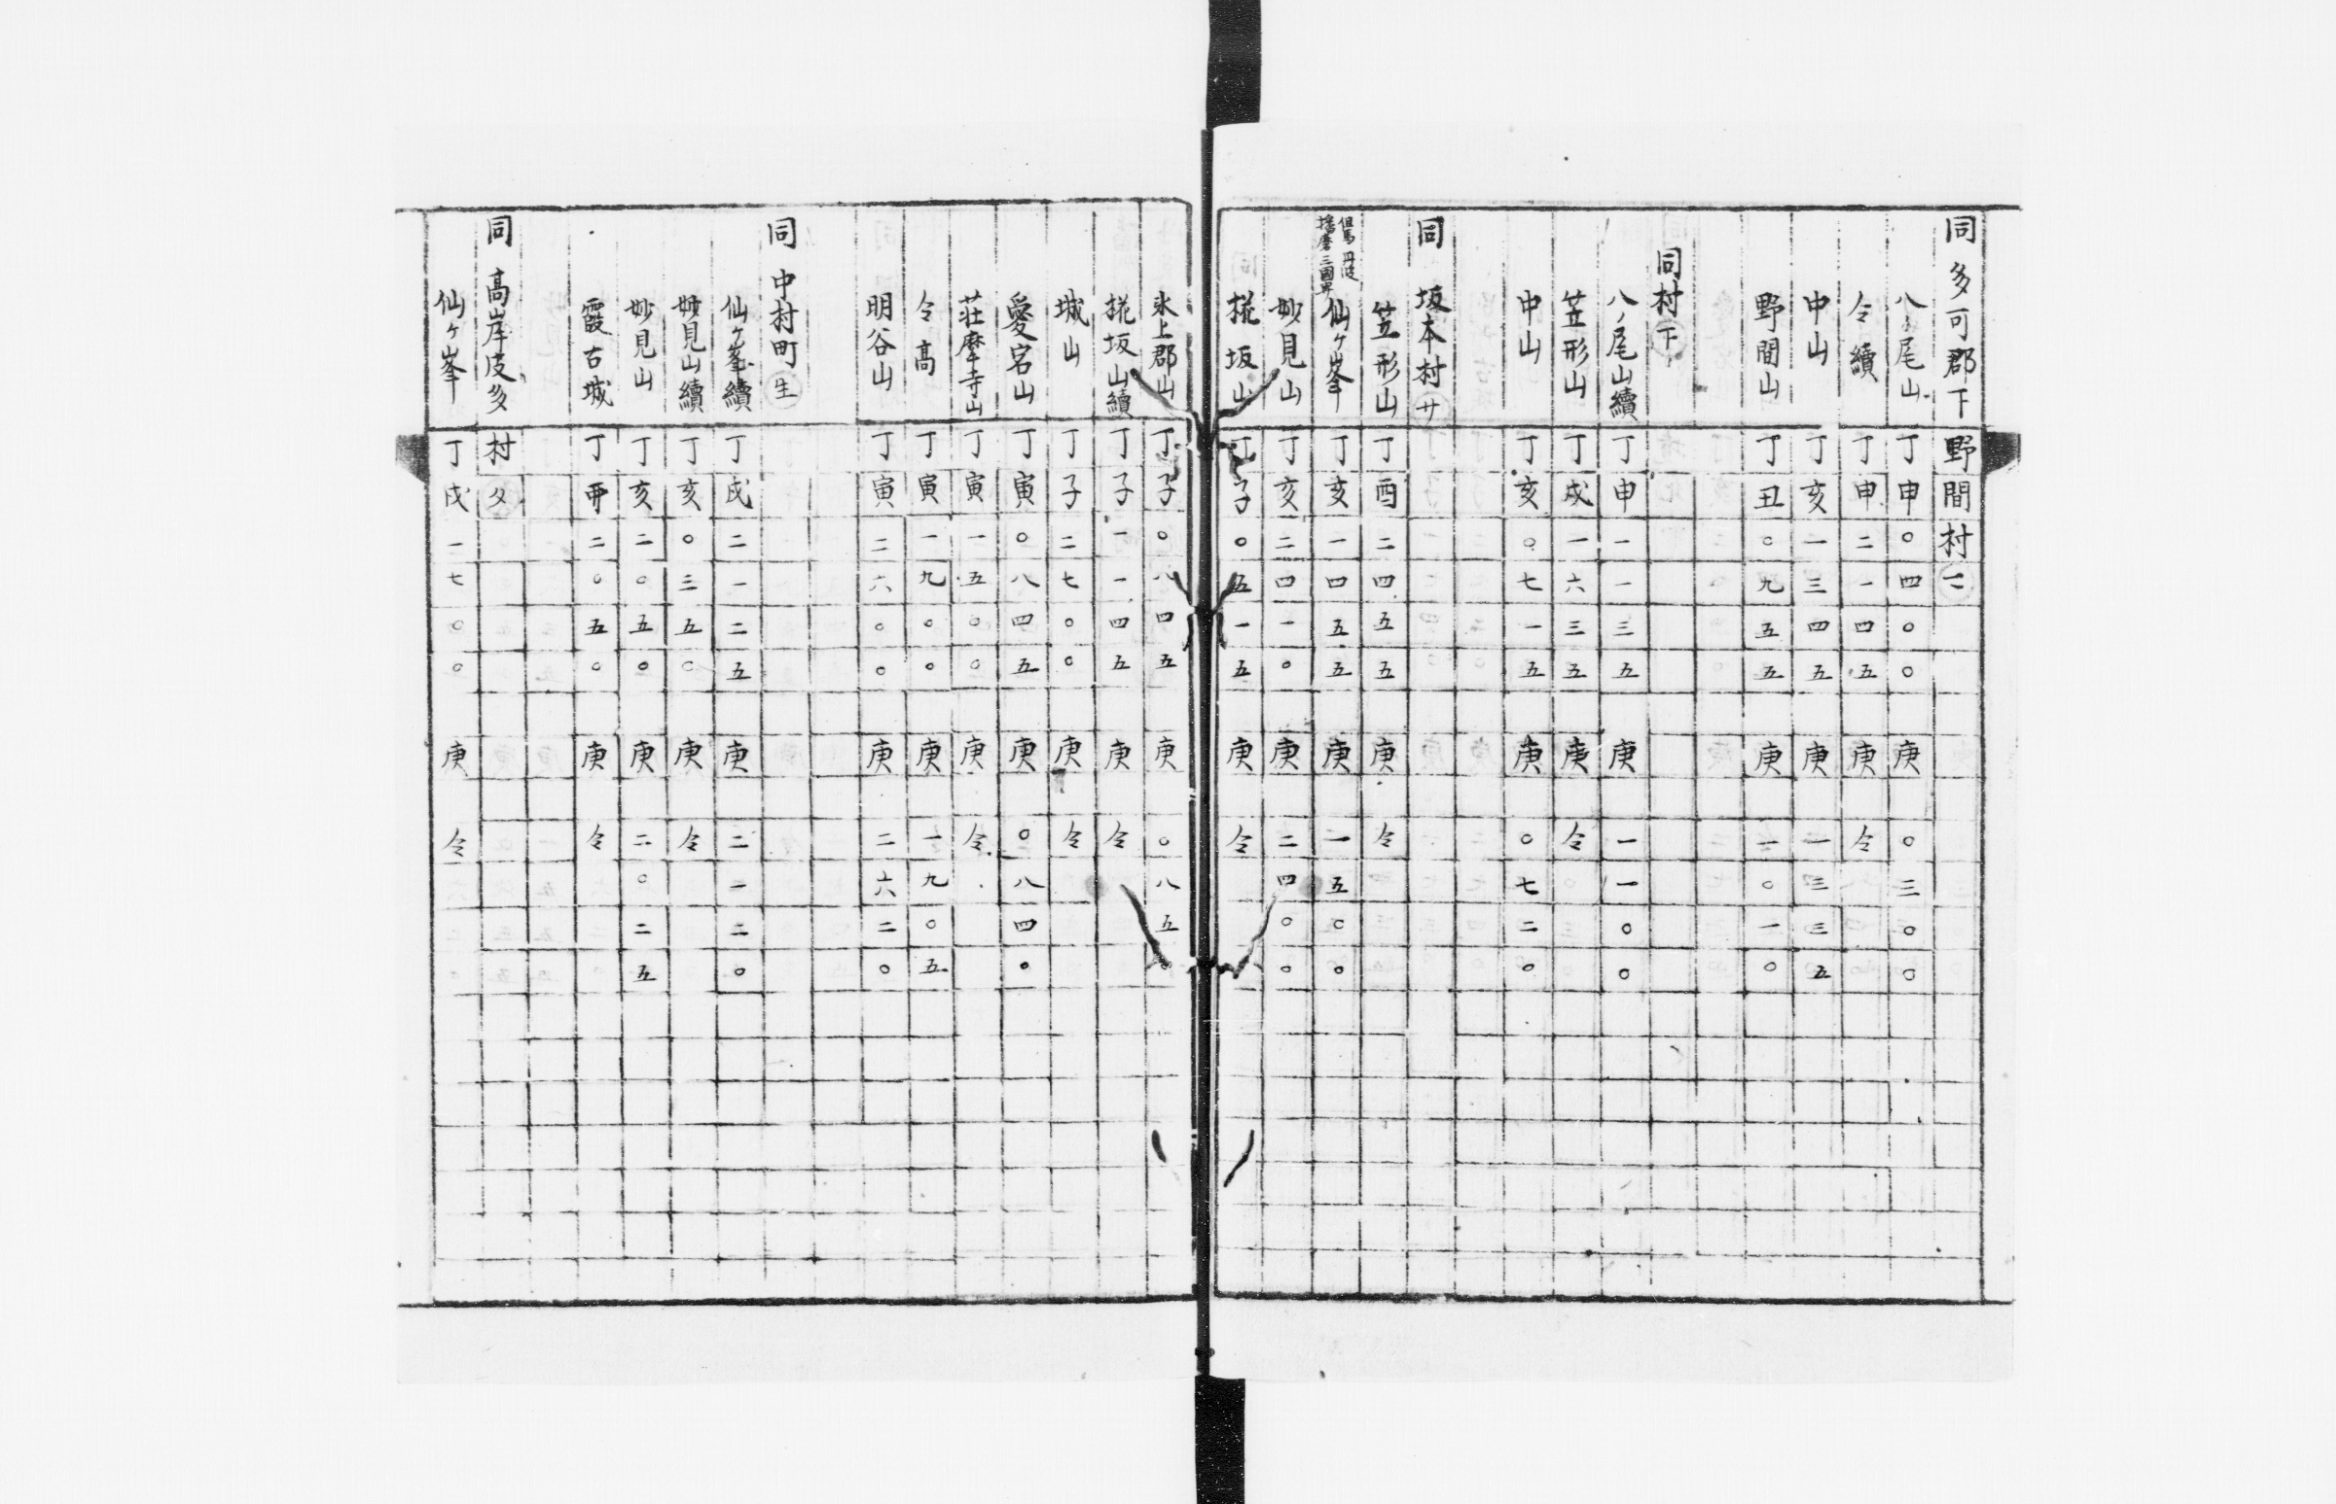 同 多可郡下野間村 二
八ノ尾山 丁申〇四〇〇 庚 〇三〇〇
仝續 丁申二一四五 庚 仝
中山 丁亥一三四五 庚 一三三五
野間山 丁丑〇九五五 庚 一〇一〇
同村 下
八ノ尾山續 丁申一一三五 庚 一一〇〇
笠形山 丁戌一六三五 庚 仝
中山 丁亥〇七一五 庚 〇七二〇
同 坂本村 サ
笠形山 丁酉二四五五 庚 仝
但馬 丹波
播磨 三國界
仙ヶ峯 丁亥一四五五 庚 一五〇〇
妙見山 丁亥二四一〇 庚 二四〇〇
椛坂山 丁子〇五一五 庚 仝
氷上郡山 丁子〇八四五 庚 〇八五〇
椛坂山續 丁子一一四五 庚 仝
城山 丁子二七〇〇 庚 仝
愛宕山 丁寅〇八四五 庚 〇八四〇
荘厳寺山 丁寅一五〇〇 庚 仝
仝高 丁寅一九〇〇 庚 一九〇五
明谷山 丁寅二六〇〇 庚 二六二〇
同 中村町 生
仙ヶ峯續 丁戌二一二五 庚 二一二〇
妙見山續 丁亥〇三五〇 庚 仝
妙見山 丁亥二〇五〇 庚 二〇二五
霞古城 丁 二〇五〇 庚 仝
同 高岸皮多村 タ
仙ヶ峯 丁戌二七〇〇 庚 仝